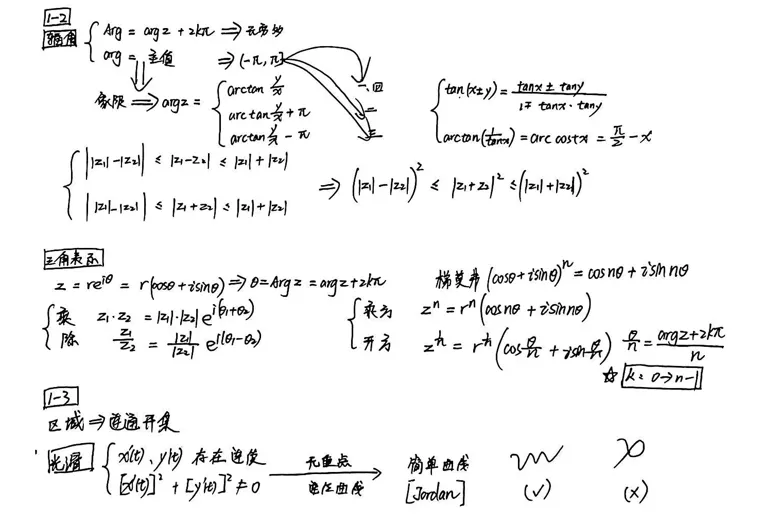 1-2
辐角 { Arg = argz + 2kπ ⟹ 无穷多
arg = 主值 ⟹ (-π, π]
象限 ⟹ argz = { arctan y/x 一、四
arctan y/x + π 二
arctan y/x - π 三
{ tan(x±y) = (tanx ± tany)/(1∓ tanx·tany)
arctan(1/tanx) = arc cotx = π/2 - x
{ ||z₁|-|z₂|| ≤ |z₁-z₂| ≤ |z₁|+|z₂|
||z₁|-|z₂|| ≤ |z₁+z₂| ≤ |z₁|+|z₂|
⟹ (|z₁|-|z₂|)² ≤ |z₁+z₂|² ≤ (|z₁|+|z₂|)²
三角表示
z = re^{iθ} = r(cosθ+isinθ) ⟹ θ = Argz = argz+2kπ
{ 乘 z₁·z₂ = |z₁|·|z₂| e^{i(θ₁+θ₂)}
除 z₁/z₂ = |z₁|/|z₂| e^{i(θ₁-θ₂)}
棣莫弗 (cosθ+isinθ)ⁿ = cosnθ + isinnθ
{ 乘方 zⁿ = rⁿ(cosnθ + isinnθ)
开方 z^{1/n} = r^{1/n}(cos θ/n + isin θ/n) θ/n = (argz+2kπ)/n
☆ k = 0→n-1
1-3
区域 ⟹ 连通开集
光滑 { x'(t)、y'(t) 存在连续
[x'(t)]² + [y'(t)]² ≠ 0
无重点
连续曲线
简单曲线
[Jordan] (√) (×)